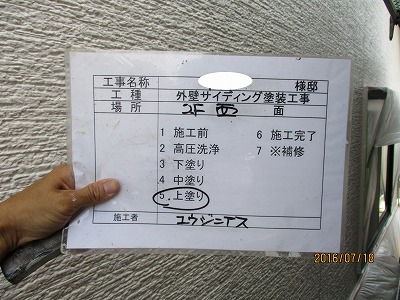 工事名称 様邸
工種 外壁サイディング塗装工事
場所 2F 西 面
1 施工前 6 施工完了
2 高圧洗浄 7 ※補修
3 下塗り
4 中塗り
5 上塗り
施工者 ユウジニアス
2016/07/18